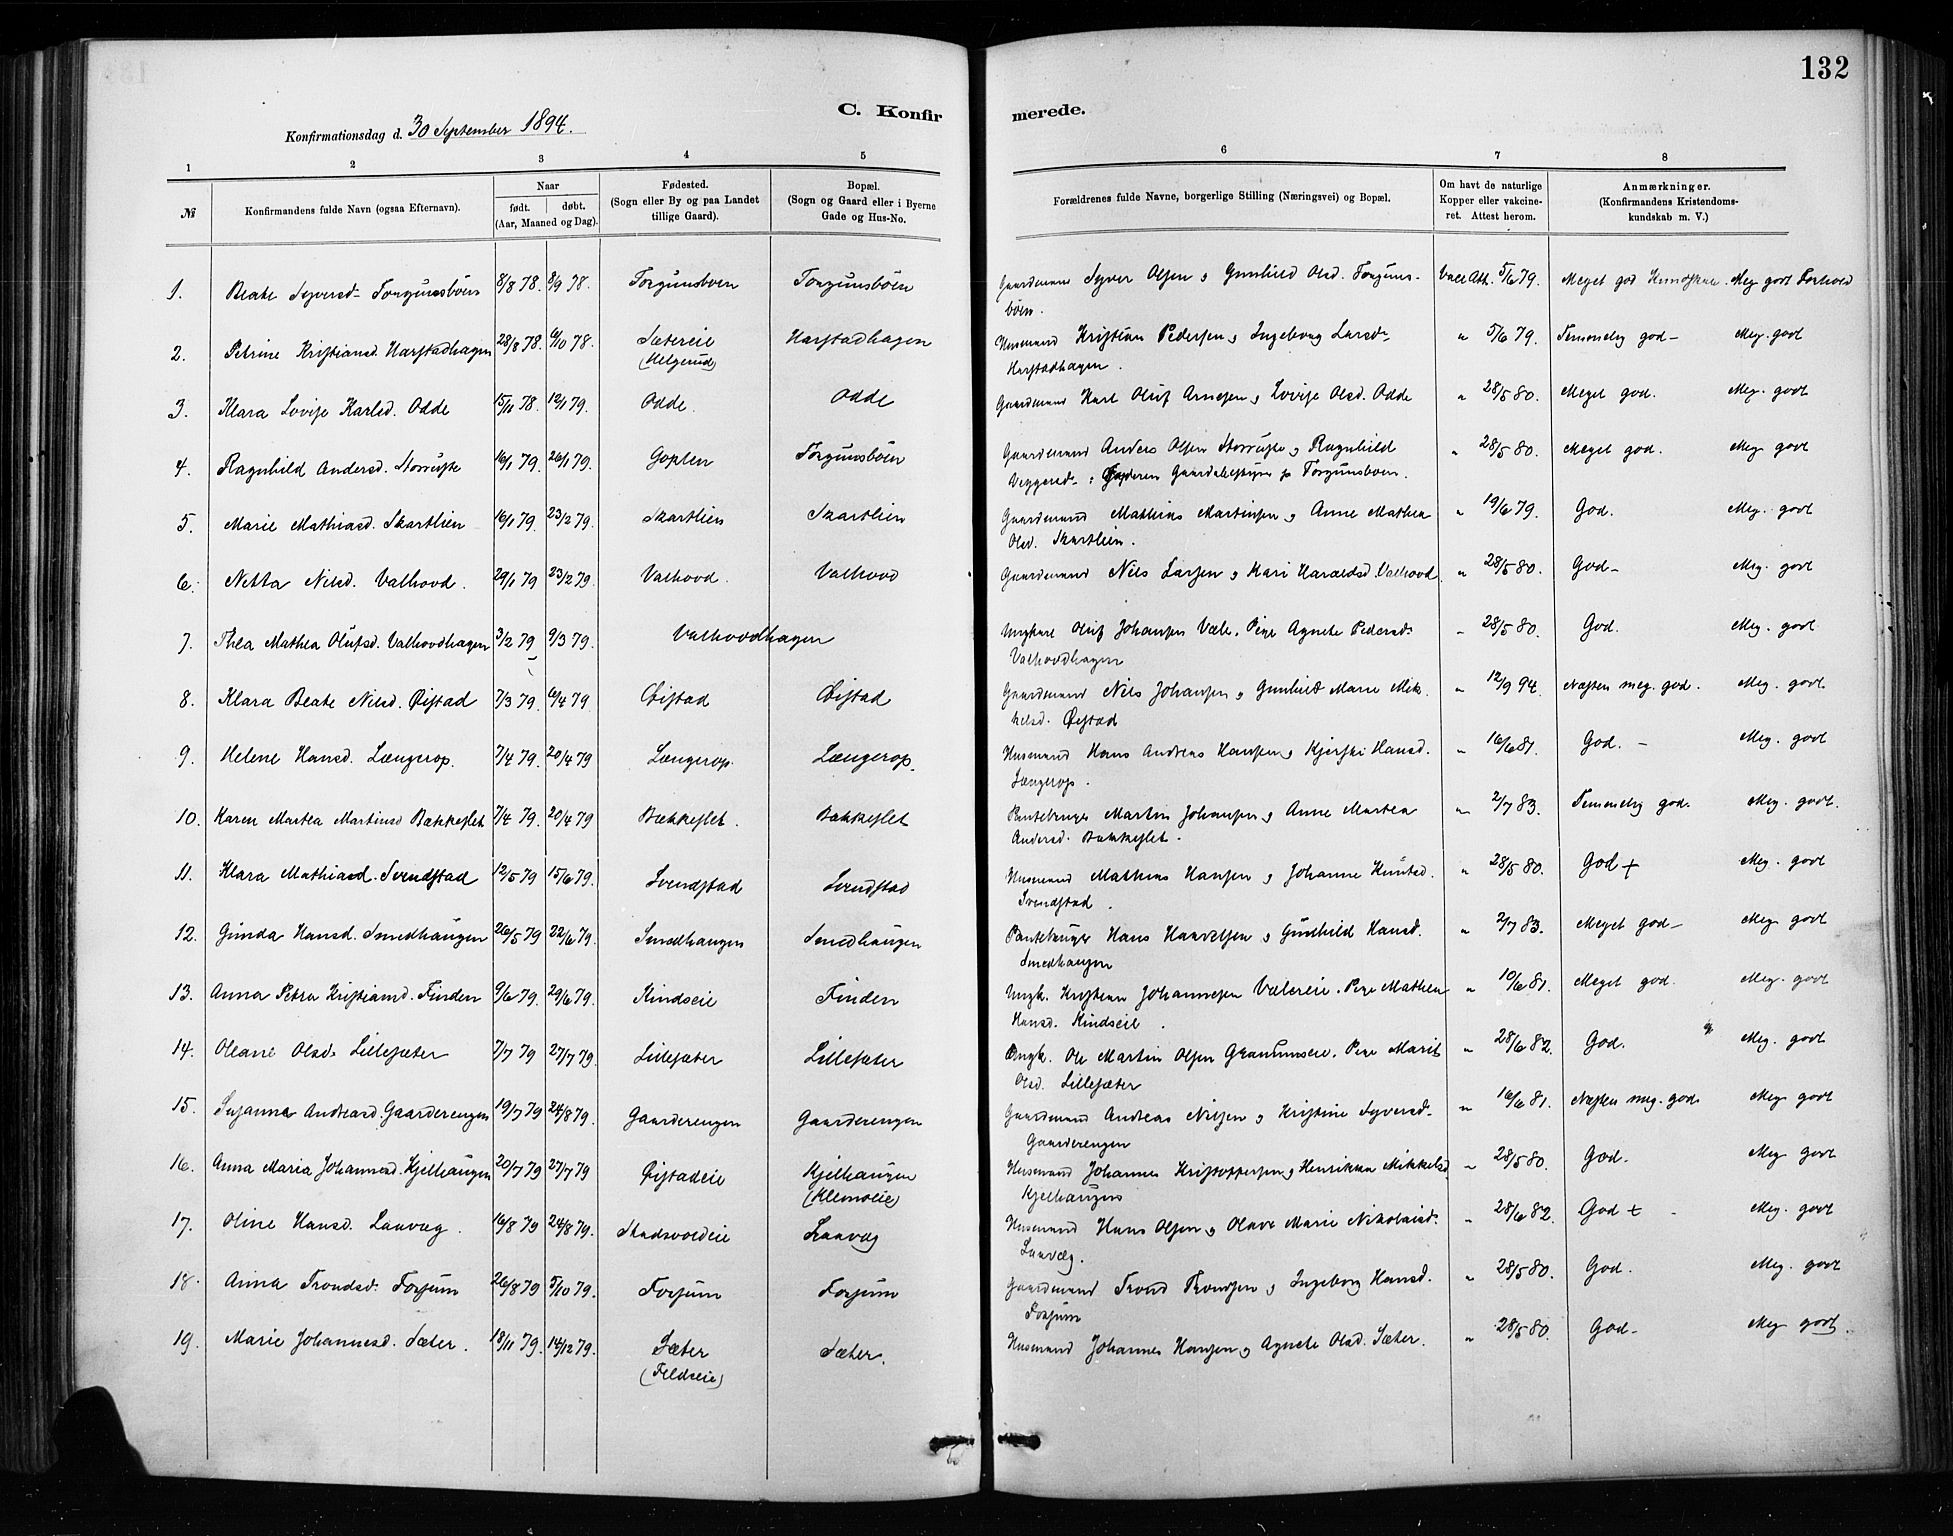 132
C. Konfirmerede.
Konfirmationsdag d. 30 September 1894.
1 2 3 4 5 6 7 8
№ Konfirmandens fulde Navn (ogsaa Efternavn). Naar født. døbt. (Aar, Maaned og Dag). Fødested. (Sogn eller By og paa Landet tillige Gaard). Bopæl. (Sogn og Gaard eller i Byerne Gade og Hus-No. Forældrenes fulde Navne, borgerlige Stilling (Næringsvei) og Bopæl. Om havt de naturlige Kopper eller vakcineret. Attest herom. Anmærkninger. (Konfirmandens Kristendomskundskab m. V.)
1. Beate Syversd. Torgunsböen 8/8 78. 8/9 78. Torgunsboen Torgunsböen Gaardmand Syver Olsen og Gunhild Olsd. Torgunsböen. Vacc. Att. 5/6 79. Meget god Kundskab. Meg. godt Forhold
2. Petrine Kristiansd. Harstadhagen 28/8 78. 6/10 78. Sætereie (Helgerud) Harstadhagen Husmand Kristian Pedersen og Ingeborg Larsd. Harstadhagen. " 5/6 79. Temmelig god- Meg. godt
3. Klara Lovise Karlsd. Odde 15/11 78. 12/1 79. Odde. Odde Gaardmand Karl Oluf Arnesen og Lovise Olsd. Odde " 28/5 80. Meget god. Meg. godt
4. Ragnhild Andersd. Storruste 16/1 79. 26/1 79. Goplen Torgunsböen Gaardmand Anders Olsen Storruste og Ragnhild Veggersd. Gaardbestyrer p Torgunsboen. " 28/5 80. Meget god. Meg. godt
5. Marie Mathiasd. Skartlien 16/1 79. 23/2 79. Skartlien Skartlien Gaardmand Mathias Martinsen og Anne Mathea Olsd. Skartlien. " 19/6 79. God. Meg. godt
6. Netta Nilsd. Valhovd. 29/1 79 23/2 79. Valhovd. Valhovd Gaardmand Nils Larsen og Kari Haraldsd. Valhovd. " 28/5 80. God- Meg. godt
7. Thea Mathea Olufsd. Valhovdhagen 3/2 79 9/3 79. Valhovdhagen Ungkarl Oluf Johansen Væle. Pige Agnete Pedersd. Valhovdhagen " 28/5 80. God. Meg. godt
8. Klara Beate Nilsd. Øistad 7/3 79. 6/4 79 Øistad Øistad Gaardmand Nils Johansen og Gunhild Marie Mikkelsd. Øistad " 12/9 94. Næsten meg. god. Meg. godt
9. Helene Hansd. Længerop. 7/4 79. 20/4 79 Længerop. Længerop. Husmand Hans Andreas Hansen og Kjersti Hansd. Længerop. " 16/6 81. God. - Meg. godt
10. Karen Martea Martinsd Bækkeflet 7/4 79. 20/4 79 Bækkeflet. Bækkeflet Pantebruger Martin Johansen og Anne Martea Andersd. Bækkeflet. " 2/7 83. Temmelig god. Meg. godt.
11. Klara Mathiasd. Svendstad 12/5 79 15/6 79. Svendstad Svendstad Husmand Mathias Hansen og Johanne Knutsd. Svendstad. " 28/5 80. God + Meg. godt
12. Gunda Hansd. Smedhaugen 26/5 79 22/6 79. Smedhaugen Smedhaugen Pantebruger Hans Haavelsen og Gunhild Hansd. Smedhaugen " 2/7 83. Meget god- Meg. godt
13. Anna Petra Kristiansd. Finden 9/6 79. 29/6 79. Kindseie Finden Ungk. Kristian Johannesen Vælereie. Pige Mathea Hansd. Kindseie. " 10/6 81. Meget god. Meg. godt
14. Oleane Olsd. Lillesæter 7/7 79 27/7 79. Lillesæter Lillesæter Ungk. Ole Martin Olsen Granumseie. Pige Marit Olsd. Lillesæter " 28/6 82. God. Meg. godt
15. Susanna Andreasd. Gaarderengen 19/7 79 24/8 79. Gaarderengen Gaarderengen Gaardmand Andreas Nilsen og Kristine Syversd. Gaarderengen " 16/6 81. Næsten meg. god. Meg. godt
16. Anna Maria Johannesd. Kjelhaugen 20/7 79 27/7 79 Øistadeie Kjelhaugen (Klemoeie) Husmand Johannes Kristoffersen og Henrikka Mikkelsd. Kjelhaugen " 28/5 80. God. Meg. godt
17. Oline Hansd. Laavæg. 16/8 79 24/8 79. Stadsvoldeie Laavæg Husmand Hans Olsen og Olave Marie Nikolaisd. Laavæg. " 28/6 82. God + Meg. godt
18. Anna Trondsd. Fossum 26/8 79 5/10 79. Fossum Fossum Gaardmand Trond Trondsen og Ingeborg Hansd. Fossum " 28/5 80. God. Meg. godt
19. Marie Johannesd. Sæter. 18/11 79. 14/12 79. Sæter (Feldseie) Sæter. Husmand Johannes Hansen og Agnete Olsd. Sæter. " 28/5 80. God- Meg. godt.